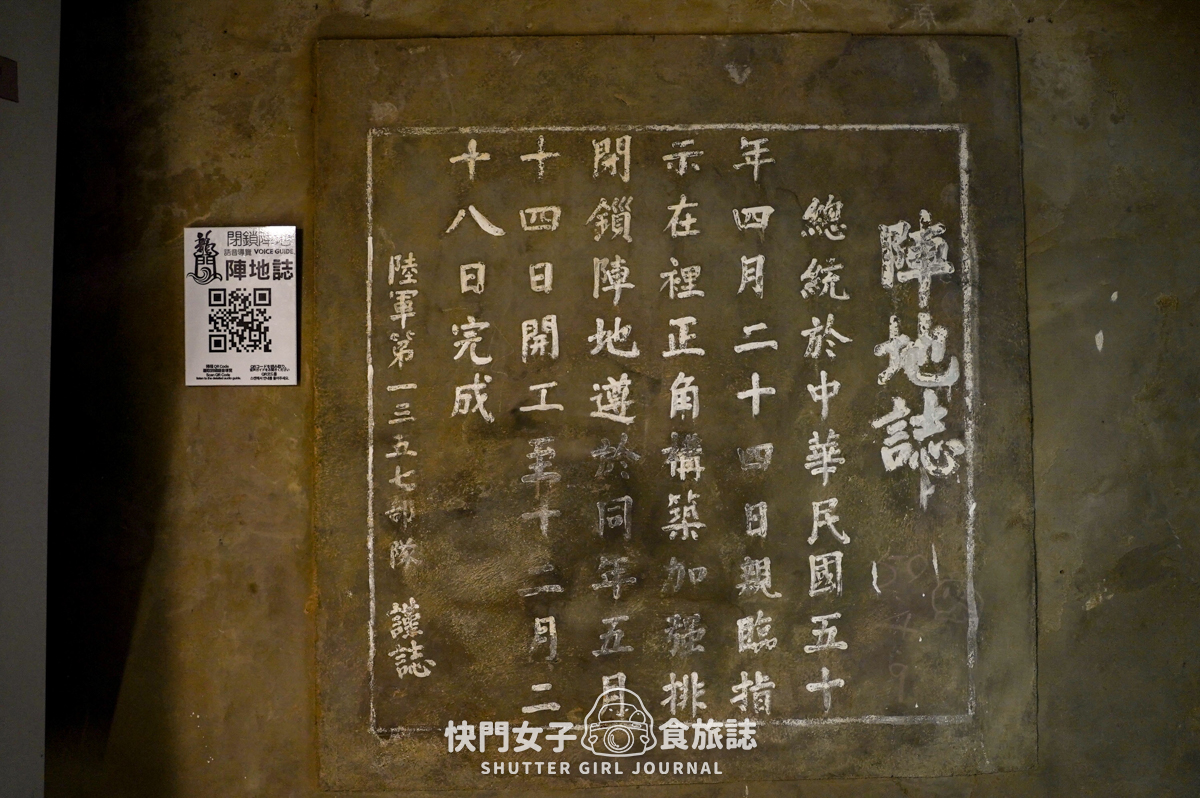 陣地誌
總統於中華民國五十
年四月二十四日親臨指
示在裡正角構築加强排
閉鎖陣地遵於同年五月
十四日開工至十二月二
十八日完成
陸軍第一三五七部隊 謹誌
龍門
閉鎖陣地
語音導覽 VOICE GUIDE
陣地誌
快門女子 食旅誌
SHUTTER GIRL JOURNAL